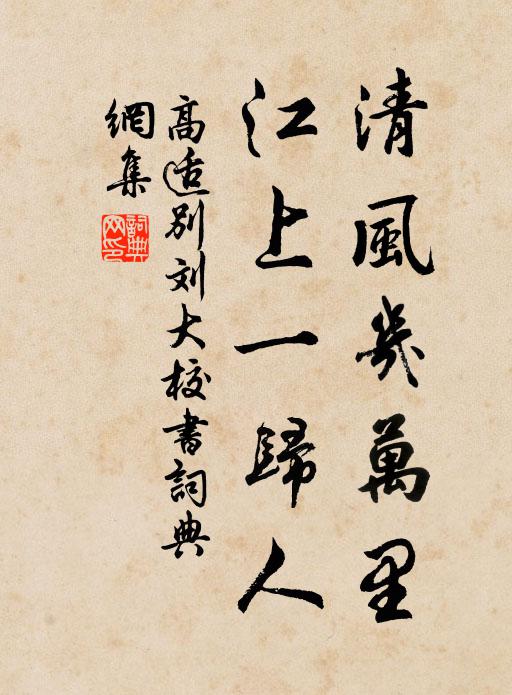 清風幾萬里
江上一歸人
高适别刘大校書詞典
網集
詞典網印